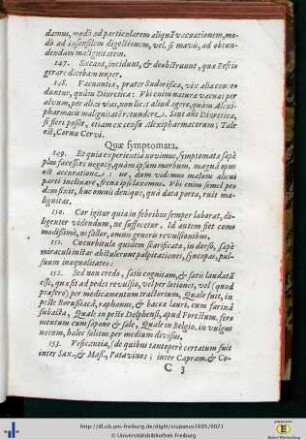 damus, modò ad particularem aliquã vacuationem, mo-
dò ad insensilem digestionem, vel, si mavis, ad obtun-
dendam malignitatem.
147. Siccant, incidunt, & deobstruunt, qua Resp
gerare dicebam nuper.
148. Vacuantia, præter Sudorifica, vix alia con
duntur, quàm Diuretica: Vbi enim natura vacuat per
alvum, per alias vias, non licet aliud agere, quàm Alexi-
pharmacis malignitatẽ retundere. Sint aũte Diuretica,
si fieri possit, etiam ex censu Alexipharmacorum; Tale
est, Cornu Cervi.
Quæ symptomata.
149. Et quia experientiâ novimus, symptomata sæpè
plus facessere negotij, quàm ipsum morbum, magnâ opus
est accuratione; ne, dum vidimus malum alicui
parti inclinare, frena ipsi laxemus. Vbi enim semel pe-
dem fixit, huc omnis denique, quâ data porta, ruit ma-
lignitas.
150. Cor igitur quia in febribus semper laborat, di-
ligenter videndum, ne suffocetur. Id autem fiet como-
dissimè, ut fallor, omni generis revulsionibus.
151. Cucurbitula quidem scarificata, in dorso, sæpè
miraculi instar abstulerunt palpitationes, syncopas, pul-
suum inæqualitates:
152. Sed non credo, satis cognitam, & satis laudatã
esse, quæ fit ad pedes revulsio, vel per lotiones, vel (quod
præfero) per medicamentum tractorium. Quale fuit, in
peste Borussiacâ, raphanus, & bacca lauri, cum farinâ
subacta, Quale in peste Delphensi, apud Forestum, fer-
mentum cum sapone & sale, Quale in Belgio, in vulgus
notum, halec salitus per medium divisus.
153. Vesicantia, de quibus tantoperè certatum fuit
inter Sax. & Mass. Patavinos; inter Capram. & Co-
C 3
http://dl.ub.uni-freiburg.de/diglit/stupanus1605/0021
© Universitätsbibliothek Freiburg